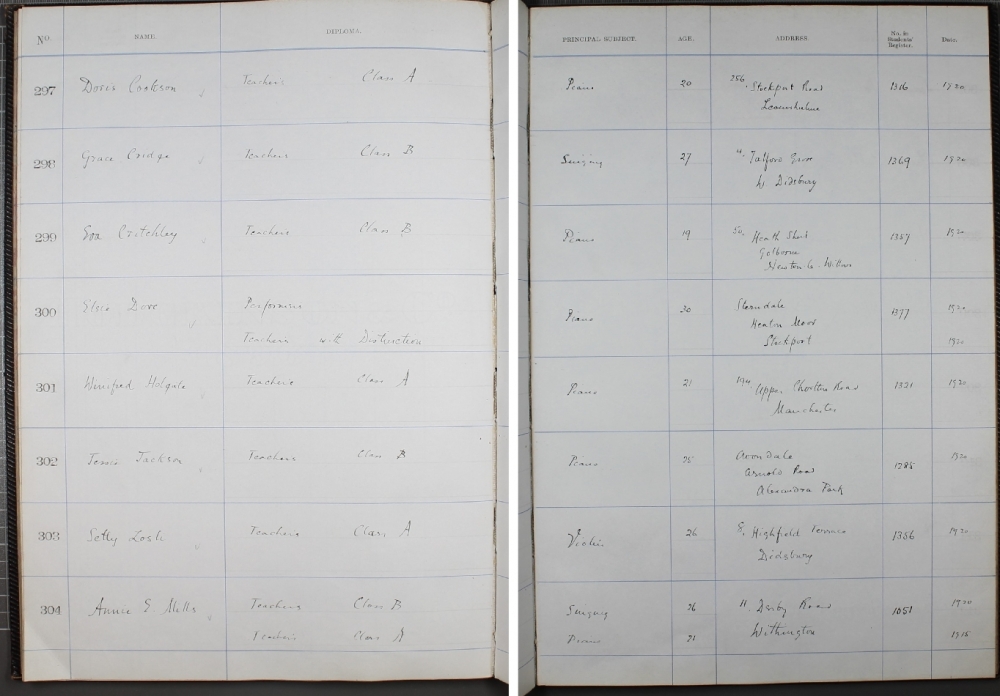 No. NAME. DIPLOMA. PRINCIPAL SUBJECT. AGE. ADDRESS No. in Students' Register. Date.
297 Doris Cookson Teachers Class A Piano 20 256, Stockport Road 1316 1920
Levenshulme
298 Grace Cridge Teachers Class B Singing 27 Talford Grove 1369 1920
W. Didsbury
299 Eva Critchley Teachers Class B Piano 19 50, Heath Street 1357 1920
Golborne
Newton-le-Willows
300 Elsie Dove Performers Piano 30 1377 1920
Heaton Moor
Teachers with Distinction Stockport 1920
301 Winifred Holgate Teachers Class A Piano 21 Upper Chorlton Road 1321 1920
Manchester
302 Jessie Jackson Teachers Class B Piano 25 Avondale 1920
Arnold Road
Alexandra Park
303 Setty Losh Teachers Class A Violin 26 8, Highfield Terrace 1356 1920
Didsbury
304 Annie E Mills Teachers Class B Singing 26 11, Derby Road 1051 1920
Teachers Class A Piano 21 Withington 1915